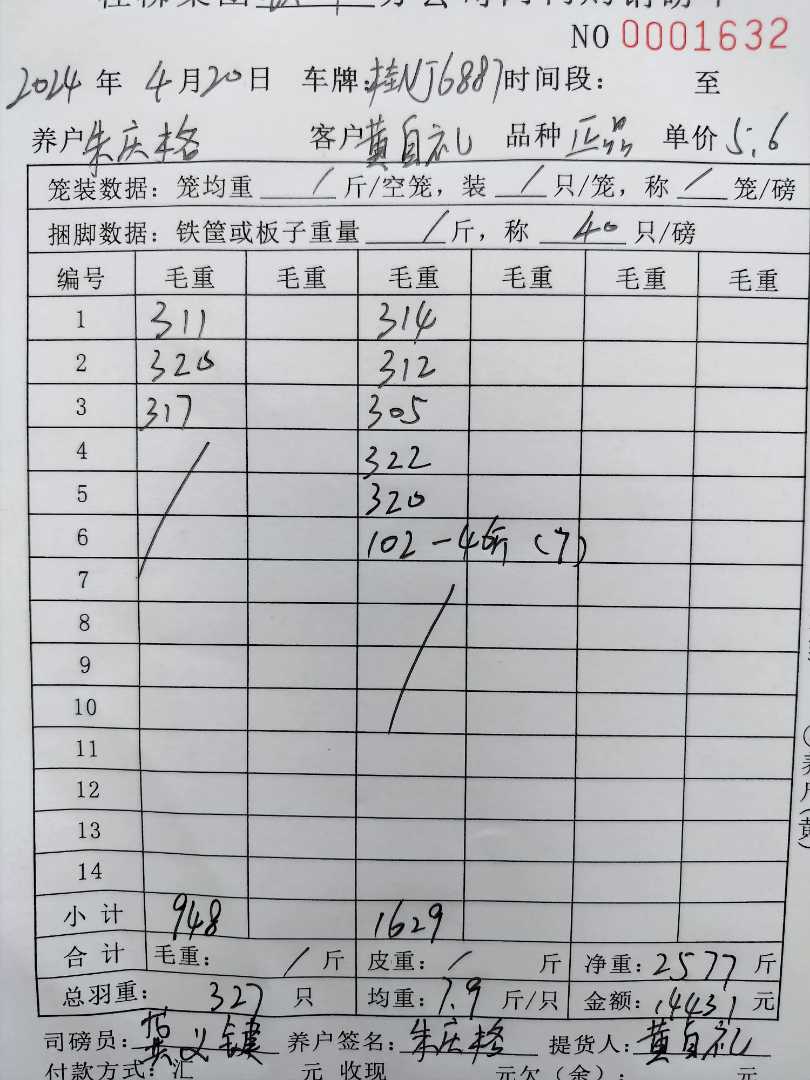 NO 0001632
2024年 4月20日 车牌:桂NJ6887 时间段: 至
养户 朱庆格 客户 黄自礼 品种 正品 单价 5.6
笼装数据: 笼均重 / 斤/空笼, 装 / 只/笼, 称 / 笼/磅
捆脚数据: 铁筐或板子重量 / 斤, 称 40 只/磅
编号 毛重 毛重 毛重 毛重 毛重 毛重
1 311 314
2 320 312
3 317 305
4 322
5 320
6 102-4斤 (7)
7
8
9
10
11
12
13
14
小计 948 1629
合计 毛重: / 斤 皮重: / 斤 净重: 2577 斤
总羽重: 327 只 均重: 7.9 斤/只 金额: 14431 元
司磅员: 养户签名: 朱庆格 提货人: 黄自礼
付款方式: 汇 元 收现 元欠(余): 元